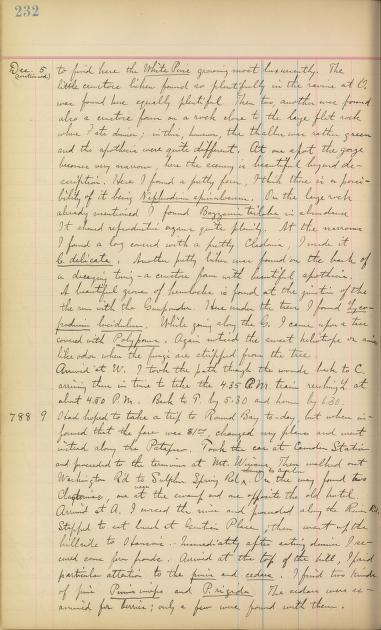 232
Dec. 5 to find here the White Pine growing most luxuriantly. The
(continued) little crustose lichen found so plentifully in the ravine at O.
was found here equally plentiful. Then too, another was found
also a crustose form on a rock close to the large flat rock
where I ate dinner; in this, however, the thallus was rather green
and the apothecia were quite different. At one spot the gorge
becomes very narrow, here the scenery is beautiful beyond de-
scription. Here I found a pretty fern, I think there is a possi-
bility of it being Nephrodium spinulosum. On the large rock
already mentioned I found Bazzania trilobata in abundance
It should reproductive organs quite plainly. At the narrows
I found a log covered with a pretty Cladonia, I made it
C. delicata. Another pretty lichen was found on the bark of
a decaying twig - a crustose form with beautiful apothecia.
A beautiful grove of hemlocks is found at the junction of the
the run with the Gunpowder. Here under the trees I found Lyco-
podium lucidulum. While going along the G. I came upon a tree
covered with Polyporus. Again noticed the sweet heliotrope or
like odor when the fungi are stripped from the tree.
Arrived at W. I took the path though the woods back to C.
arriving there in time to take the 4.35 P.M. train reaching at
about 4.50 P.M. Back to T. by 5.30 and home by 6.30.
788 9 I had hoped to take a trip to Round Bay to-day, but when in-
formed that the fare was changed my plans and went
instead along the Patapsco. Took the car at Camden Station
and proceeded to the terminus at Mt. Winans. Then walked out
Washington Rd. to Sulphur Spring Rd. On the way found two
one at the swamp and one opposite the old hotel.
Arrived at A. I crossed the river and proceeded along the River Rd.
Stopped to eat lunch at Gentian Place, then went up the
hillside to Ilchester. Immediately after eating dinner I se-
cured some fern fronds. Arrived at the top of the hill, I paid
particular attention to the pines and cedars. I find two kinds
of pine Pinus inops and P. rigida. The cedars were ex-
amined for berries; only a few were found with them.